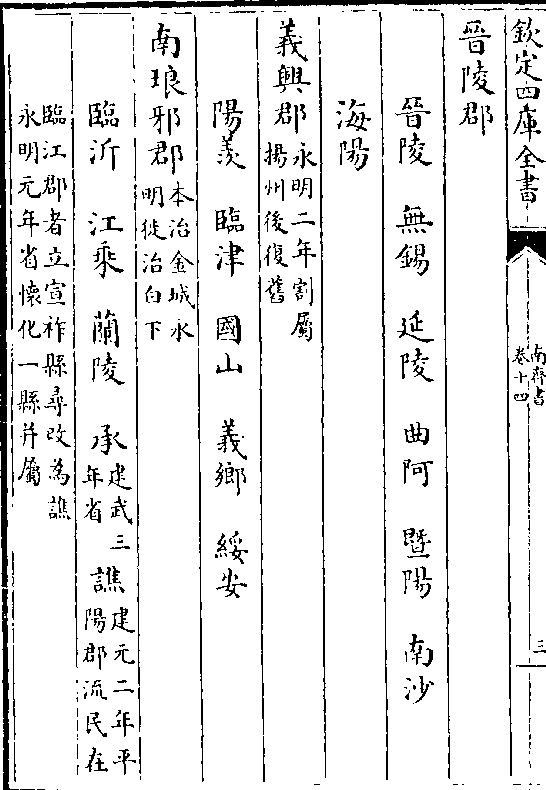 欽定四庫全書
南齊書
卷十四
三
晉陵郡
晉陵 無錫 延陵 曲阿 暨陽 南沙
海陽
義興郡永明二年割屬
揚州後復舊
陽羡 臨津 國山 義鄉 綏安
南琅邪郡本治金城永
明徙治白下
臨沂 江乘 蘭陵 承建武三
年省 譙建元二年平
陽郡流民在
臨江郡者立宣祚縣尋改為譙
永明元年省懷化一縣并屬